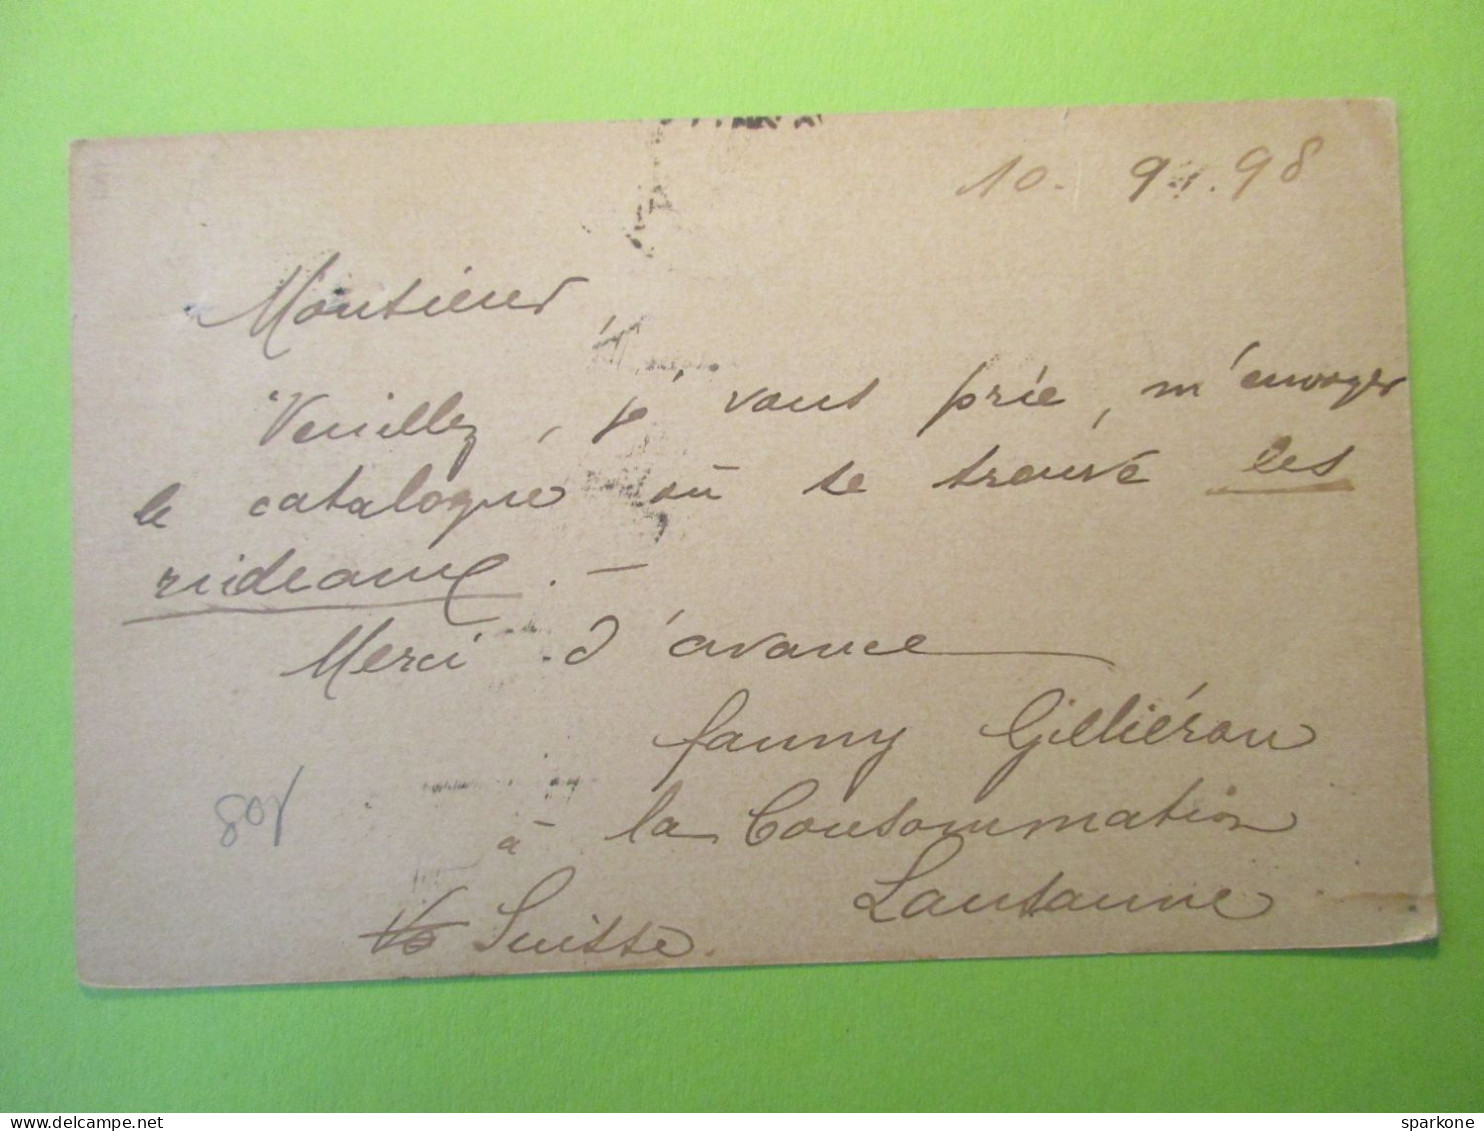 10. 9. 98
Monsieur,
Veuillez, je vous prie, m'envoyer
le catalogue où se trouve les
rideaux. —
Merci d'avance
Fanny Gilliéron
à la Consommation
Lausanne
Suisse.
sparkone
www.delcampe.net